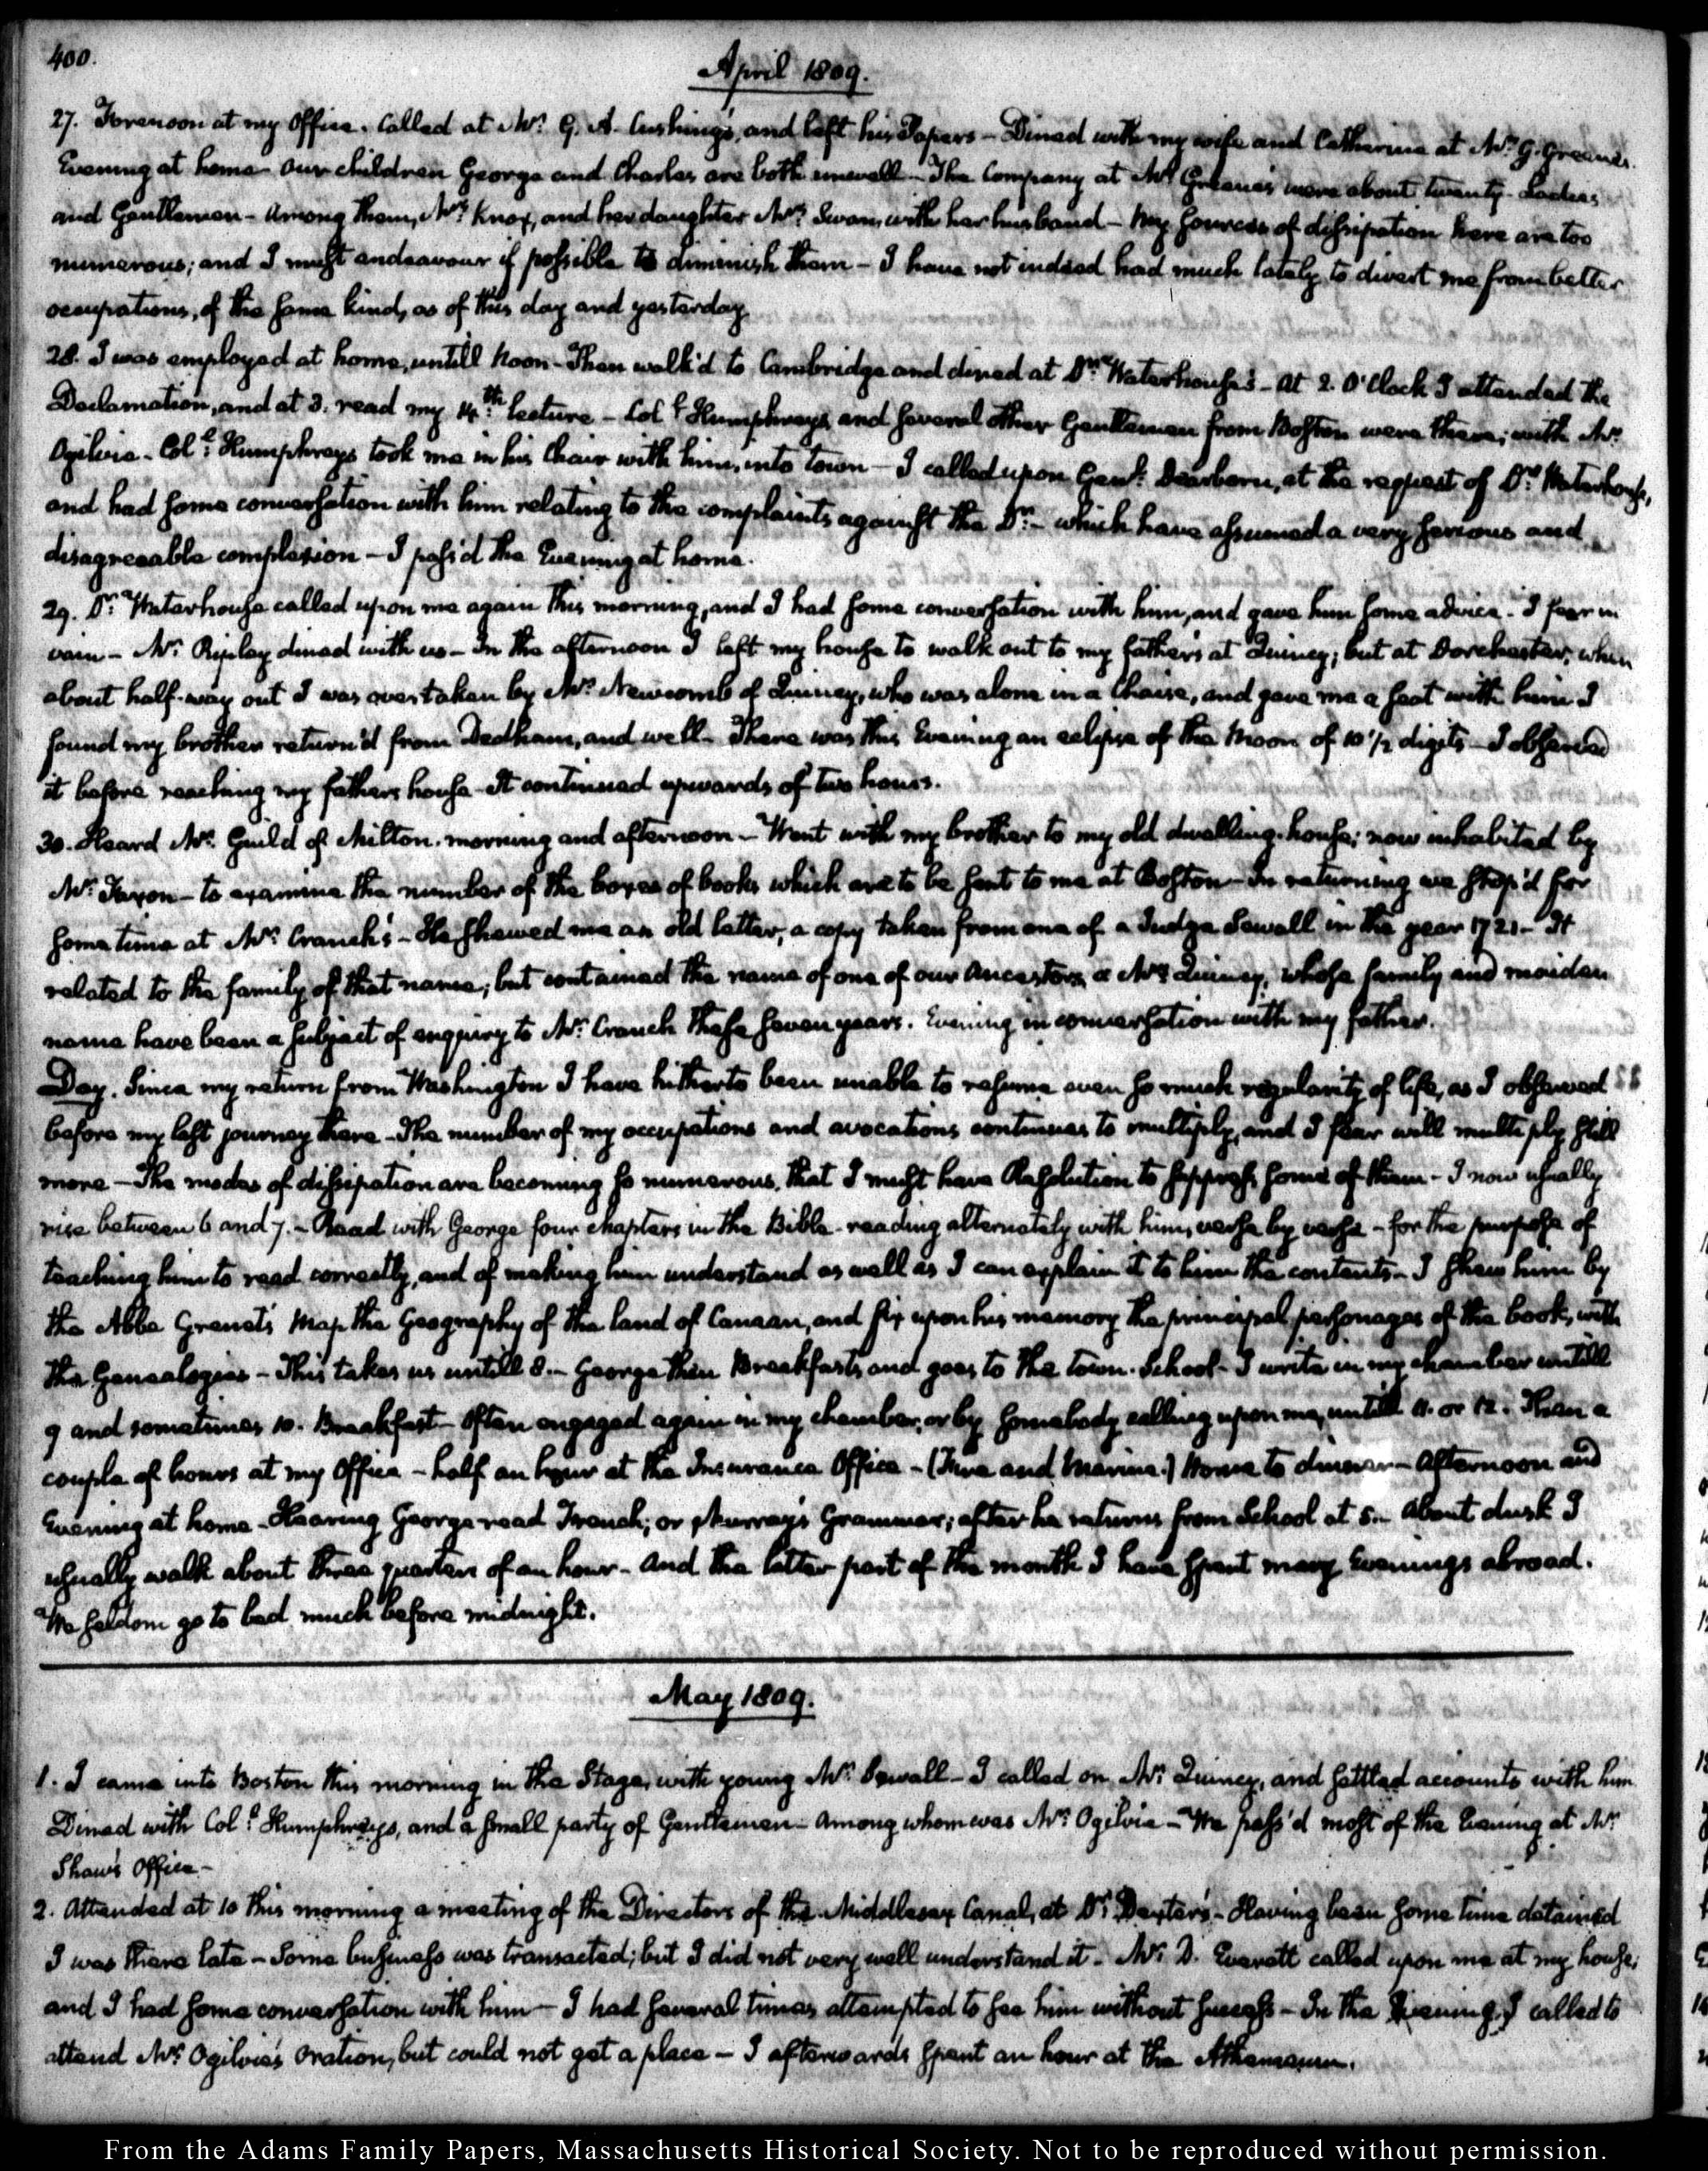 400.
April 1809.
27. Forenoon at my Office. Called at Mr. G. A. Cushing's, and left his Papers – Dined with my wife and Catherine at Mr. G. Greene's.
Evening at home – our children George and Charles are both unwell – The Company at Mr. Greene's were about twenty – Ladies
and Gentlemen – Among them, Mrs. Knox, and her daughter Mrs. Swan, with her husband – My sources of dissipation here are too
numerous; and I must endeavour if possible to diminish them – I have not indeed had much lately to divert me from better
occupations, of the same kind, as of this day and yesterday.
28. I was employed at home, untill Noon – Then walk'd to Cambridge and dined at Dr. Waterhouse's – At 2. O'Clock I attended the
Declamation, and at 3. read my 14th. lecture – Coll. Humphreys, and several other Gentlemen from Boston were there; with Mr.
Ogilvie – Coll. Humphreys took me in his Chair with him, into town – I called upon Genl. Dearborn, at the request of Dr. Waterhouse,
and had some conversation with him relating to the complaints against the Dr. – which have assumed a very serious and
disagreeable complexion – I pass'd the Evening at home.
29. Dr. Waterhouse called upon me again this morning, and I had some conversation with him, and gave him some advice – I fear in
vain – Mr. Ripley dined with us – In the afternoon I left my house to walk out to my father's at Quincy; but at Dorchester, when
about half-way out I was overtaken by Mr. Newcomb of Quincy, who was alone in a Chaise, and gave me a seat with him – I
found my brother return'd from Dedham, and well – There was this Evening an eclipse of the Moon of 10 1/2 digits – I observed
it before reaching my fathers house – It continued upwards of two hours.
30. Heard Mr. Guild of Milton. morning and afternoon – Went with my brother to my old dwelling-house; now inhabited by
Mr. Faxon – to examine the number of the boxes of books which are to be sent to me at Boston – In returning we stop'd for
some time at Mr. Cranch's – He shewed me an old letter, a copy taken from one of a Judge Sewall in the year 1721 – It
related to the family of that name; but contained the name of one of our Ancestors, a Mrs. Quincy, whose family and maiden
name have been a subject of enquiry to Mr. Cranch these seven years. Evening in conversation with my father.
Day. Since my return from Washington I have hitherto been unable to resume even so much regularity of life, as I observed
before my last journey there – The number of my occupations and avocations continues to multiply, and I fear will multiply still
more – The modes of dissipation are becoming so numerous, that I must have Resolution to suppress some of them – I now usually
rise between 6 and 7. – Read with George four chapters in the Bible – reading alternately with him, verse by verse – for the purpose of
teaching him to read correctly, and of making him understand as well as I can explain it to him the contents – I shew him by
the Abbe Grenet's Map the Geography of the land of Canaan, and fix upon his memory the principal personages of the book, with
the Genealogies – This takes us untill 8. – George then Breakfasts and goes to the town-School – I write in my chamber untill
9 and sometimes 10. Breakfast – Often engaged again in my chamber, or by somebody calling upon me, untill 11. or 12. Then a
couple of hours at my Office – half an hour at the Insurance Office – (Fire and Marine.) Home to dinner – Afternoon and
Evening at home – Hearing George read French; or Murray's Grammar; after he returns from School at 5. – About dusk I
usually walk about three quarters of an hour – And the latter part of the month I have spent many Evenings abroad.
We seldom go to bed much before midnight.
May 1809.
1. I came into Boston this morning in the Stage, with young Mr. Sewall – I called on Mr. Quincy, and settled accounts with him.
Dined with Coll. Humphreys, and a small party of Gentlemen – Among whom was Mr. Ogilvie – We pass'd most of the Evening at Mr.
Shaw's Office –
2. Attended at 10 this morning a meeting of the Directors of the Middlesex Canal, at Dr. Dexter's – Having been some time detained
I was there late – Some business was transacted; but I did not very well understand it – Mr. D. Everett called upon me at my house;
and I had some conversation with him – I had several times attempted to see him without success – In the Evening I called to
attend Mr. Ogilvie's Oration, but could not get a place – I afterwards spent an hour at the Athenaeum.
From the Adams Family Papers, Massachusetts Historical Society. Not to be reproduced without permission.